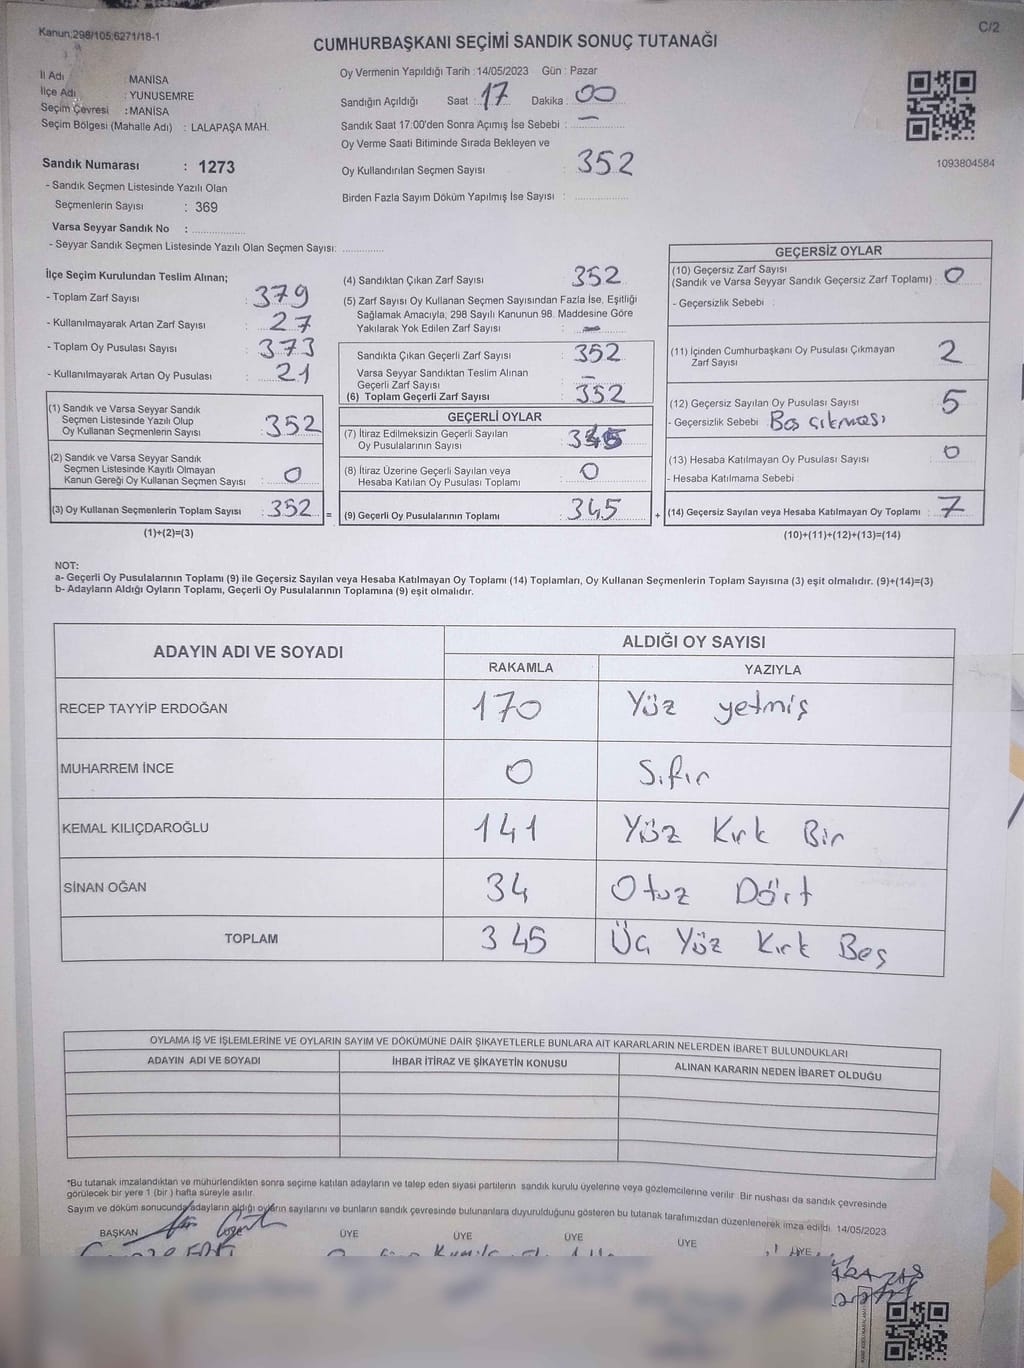 Kanun;298/105,6271/18-1
C/2
CUMHURBAŞKANI SEÇİMİ SANDIK SONUÇ TUTANAĞI
İl Adı : MANİSA
İlçe Adı : YUNUSEMRE
Seçim Çevresi : MANİSA
Seçim Bölgesi (Mahalle Adı) : LALAPAŞA MAH.
Sandık Numarası : 1273
- Sandık Seçmen Listesinde Yazılı Olan
Seçmenlerin Sayısı : 369
Varsa Seyyar Sandık No :
- Seyyar Sandık Seçmen Listesinde Yazılı Olan Seçmen Sayısı:
Oy Vermenin Yapıldığı Tarih :14/05/2023 Gün : Pazar
Sandığın Açıldığı Saat : 17 Dakika : 00
Sandık Saat 17:00'den Sonra Açımış İse Sebebi : —
Oy Verme Saati Bitiminde Sırada Bekleyen ve
Oy Kullandırılan Seçmen Sayısı : 352
Birden Fazla Sayım Döküm Yapılmış İse Sayısı :
1093804584
İlçe Seçim Kurulundan Teslim Alınan;
- Toplam Zarf Sayısı : 379
- Kullanılmayarak Artan Zarf Sayısı : 27
- Toplam Oy Pusulası Sayısı : 373
- Kullanılmayarak Artan Oy Pusulası : 21
(1) Sandık ve Varsa Seyyar Sandık
Seçmen Listesinde Yazılı Olup
Oy Kullanan Seçmenlerin Sayısı : 352
(2) Sandık ve Varsa Seyyar Sandık
Seçmen Listesinde Kayıtlı Olmayan
Kanun Gereği Oy Kullanan Seçmen Sayısı : 0
(3) Oy Kullanan Seçmenlerin Toplam Sayısı : 352 =
(1)+(2)=(3)
(4) Sandıktan Çıkan Zarf Sayısı 352
(5) Zarf Sayısı Oy Kullanan Seçmen Sayısından Fazla İse, Eşitliği
Sağlamak Amacıyla, 298 Sayılı Kanunun 98. Maddesine Göre
Yakılarak Yok Edilen Zarf Sayısı : —
Sandıkta Çıkan Geçerli Zarf Sayısı : 352
Varsa Seyyar Sandıktan Teslim Alınan
Geçerli Zarf Sayısı : —
(6) Toplam Geçerli Zarf Sayısı : 352
GEÇERLİ OYLAR
(7) İtiraz Edilmeksizin Geçerli Sayılan
Oy Pusulalarının Sayısı : 345
(8) İtiraz Üzerine Geçerli Sayılan veya
Hesaba Katılan Oy Pusulası Toplamı : 0
(9) Geçerli Oy Pusulalarının Toplamı : 345 +
GEÇERSİZ OYLAR
(10) Geçersiz Zarf Sayısı
(Sandık ve Varsa Seyyar Sandık Geçersiz Zarf Toplamı) : 0
- Geçersizlik Sebebi :
(11) İçinden Cumhurbaşkanı Oy Pusulası Çıkmayan
Zarf Sayısı 2
(12) Geçersiz Sayılan Oy Pusulası Sayısı 5
- Geçersizlik Sebebi Boş çıkması
(13) Hesaba Katılmayan Oy Pusulası Sayısı 0
- Hesaba Katılmama Sebebi
(14) Geçersiz Sayılan veya Hesaba Katılmayan Oy Toplamı : 7
(10)+(11)+(12)+(13)=(14)
NOT:
a- Geçerli Oy Pusulalarının Toplamı (9) ile Geçersiz Sayılan veya Hesaba Katılmayan Oy Toplamı (14) Toplamları, Oy Kullanan Seçmenlerin Toplam Sayısına (3) eşit olmalıdır. (9)+(14)=(3)
b- Adayların Aldığı Oyların Toplamı, Geçerli Oy Pusulalarının Toplamına (9) eşit olmalıdır.
ADAYIN ADI VE SOYADI ALDIĞI OY SAYISI
RAKAMLA YAZIYLA
RECEP TAYYİP ERDOĞAN 170 Yüz yetmiş
MUHARREM İNCE 0 Sıfır
KEMAL KILIÇDAROĞLU 141 Yüz Kırk Bir
SİNAN OĞAN 34 Otuz Dört
TOPLAM 345 Üç Yüz Kırk Beş
OYLAMA İŞ VE İŞLEMLERİNE VE OYLARIN SAYIM VE DÖKÜMÜNE DAİR ŞİKAYETLERLE BUNLARA AİT KARARLARIN NELERDEN İBARET BULUNDUKLARI
ADAYIN ADI VE SOYADI İHBAR İTİRAZ VE ŞİKAYETİN KONUSU ALINAN KARARIN NEDEN İBARET OLDUĞU
*Bu tutanak imzalandıktan ve mühürlendikten sonra seçime katılan adayların ve talep eden siyasi partilerin sandık kurulu üyelerine veya gözlemcilerine verilir. Bir nushası da sandık çevresinde
görülecek bir yere 1 (bir ) hafta süreyle asılır.
Sayım ve döküm sonucunda adayların aldığı oyların sayılarını ve bunların sandık çevresinde bulunanlara duyurulduğunu gösteren bu tutanak tarafımızdan düzenlenerek imza edildi. 14/05/2023
BAŞKAN ÜYE ÜYE ÜYE ÜYE ÜYE